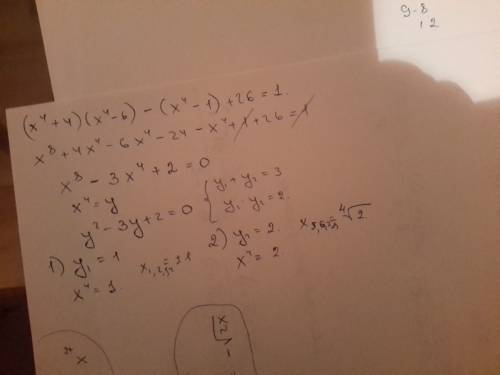 9-8
12
(x⁴+4)(x⁴-6)-(x⁴-1)+26=1.
x⁸+4x⁴-6x⁴-24-x⁴+1+26=1
x⁸-3x⁴+2=0
x⁴=y
y²-3y+2=0 { y₁+y₂=3
y₁·y₂=2.
1) y₁=1 2) y₂=2.
x⁴=1 x⁴=2